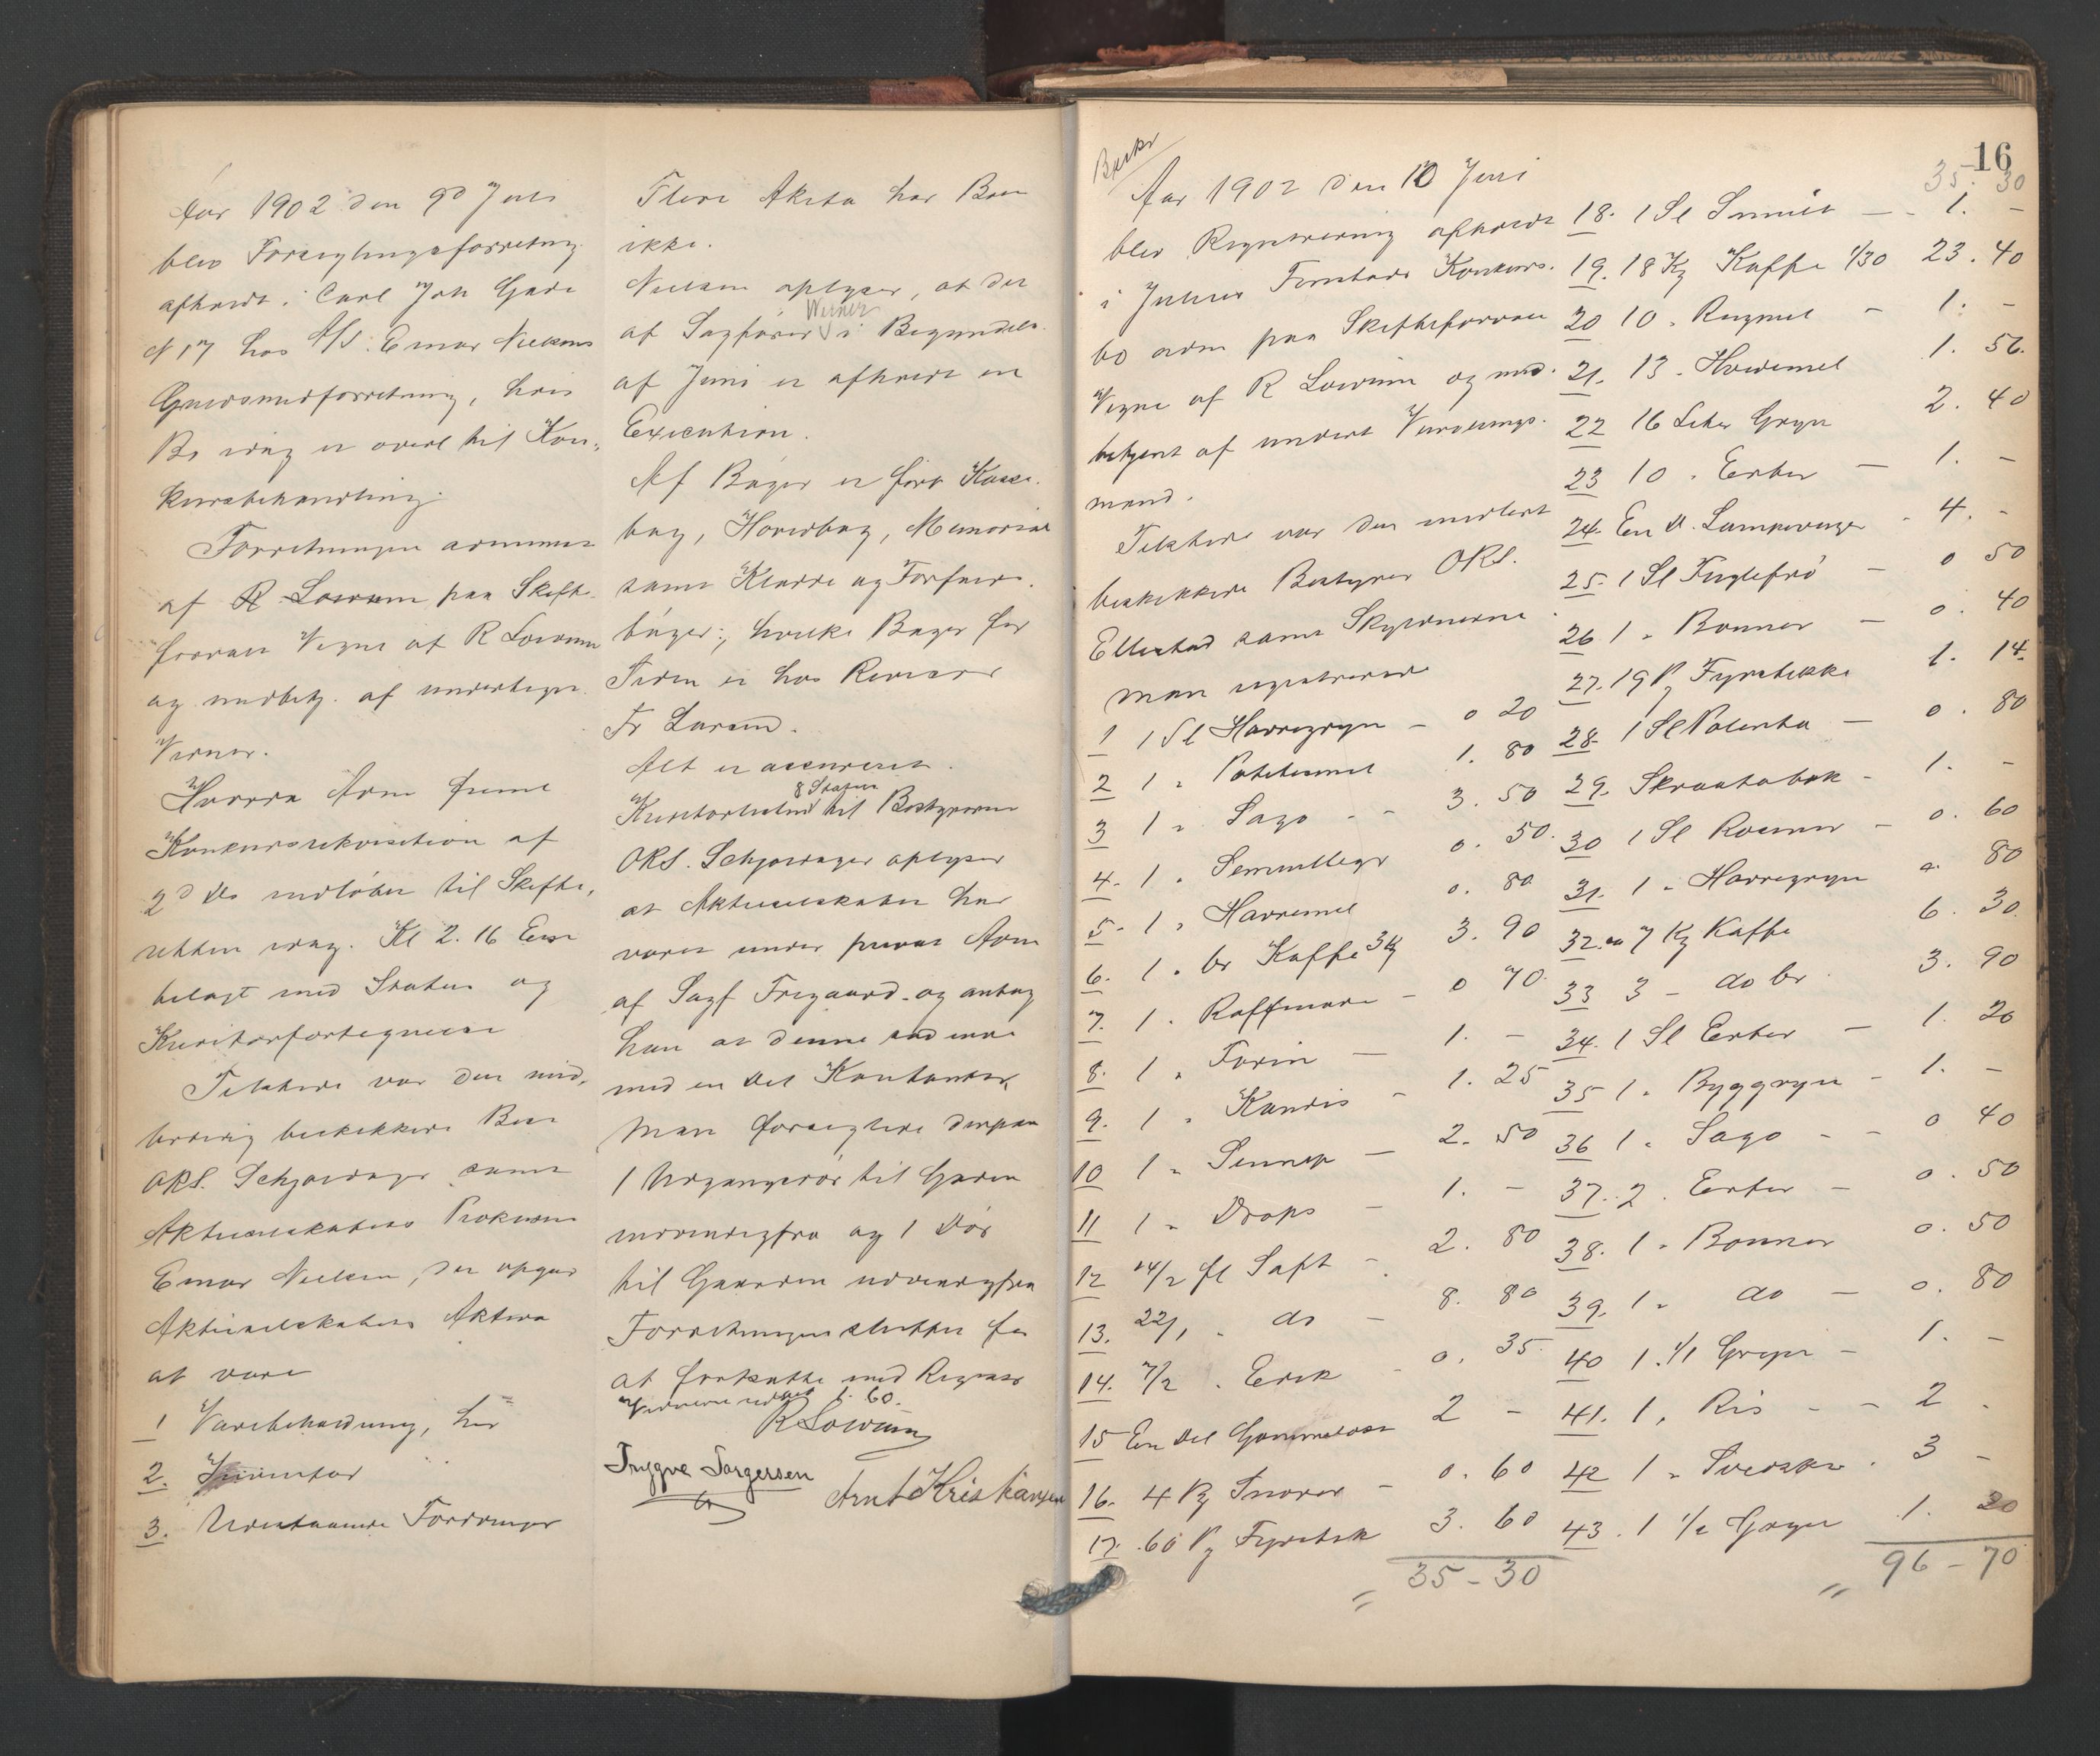 Aar 1902 den 9d Juli
blev Forseglingsforretning
afholdt i Carl Joh Gade
N 17 hos A/S. Einar Nielsens
forretning, hvis
Bo idag er overl til Kon-
kursbehandling.
Forretningen
af R Lowum paa Skifte-
forvalt Vegne af R Lowum
og medbetj. af undertegn.
Vidner.
Konkursrekvisition af
2d ds indløben til Skifte-
retten idag. Kl 2. 16 Em
bilagt med Status og
Kreditorfortegnelse
Tilstede var den mid.
lertidig beskikkede Best
ORS. Schjødager samt
Aktieselskabets
Einar Nielsen, der opgav
Aktieselskabets Aktiva
at være
1 Varebeholdning, her
2. Inventar
3. Udestaaende Fordringer
Flere Aktiva har Boet
ikke.
Nielsen oplyser, at der
af Sagfører Werner i Begyndels.
af Juni er afholdt en
Execution.
Af Bøger er ført Kasse-
bog, Hovedbog, Memorial
samt Kladde og Forfalds-
bøger; hvilke Bøger for
Tiden er hos Revisor
Fr Larsen.
Alt er assureret.
8 Status
til Bestyreren
ORS. Schjødager oplyser
at Aktieselskabet har
været under privat Adm
af Sagf Frigaard og antog
han at denne sad inde
med en Del Kontanter.
Man forseglede derpaa
1 Udgangsdør til Gaden
indvendigfra og 1 Dør
til Gaarden udvendigfra
Forretningen sluttet for
at fortsætte med Registr
Vidnerne udbet 1. 60.
R Lowum
Trygve Torgersen
Arnt Kristiansen
16
35. 30
Aar 1902 den 10 Juni
blev Registrering afholdt
i Konkurs-
bo adm paa Skifteforvalt
Vegne af R Lowum og med-
betjent af undert Vurderings-
mænd.
Tilstede var den midlert
beskikkede Bestyrer ORS.
Ellestad samt Skyldnerne
man registrerede
1 1 Sl Havregryn - 0 20
2 1 " Potetesmel 1. 80
3 1 " Sago - - 3. 50
4. 1 " Semullegr 0. 50.
5. 1 " Havremel 0. 80
6. 1 " br Kaffe 3 Kg 3. 90
7. 1 " Raffinade - 0 70
8. 1 " Farin - 1. -
9. 1 " Kandis - 1. 25
10 1 " Sennep - 2. 50
11 1 " Drops - 1. -
12 14/2 fl Saft - 2. 80
13. 22/1 " do - 8. 80
14. 7/2 " Edik - 0. 35
15 En Del Gammelost 2 -
16. 4 Pg Snorer - 0. 60
17. 60 Pg Fyrstik 3. 60
35 - 30
18. 1 Sl - - 1. -
19. 18 Kg Kaffe 1/30 23. 40
20 10 " Rugmel - 1. -
21. 13 " Hvedemel 1. 56.
22 16 Liter Gryn 2. 40
23 10 " Erter - 1. -
24. En D. Lampevæger - 4. -
25. 1 Sl Fuglefrø - 0 50
26 1 " Bønner - 0. 40
27. 19 Pg Fyrstikke 1. 14.
28. 1 Sl Polenta - 0. 80
29. Skraatobak - 1. -
30 1 Sl Rosiner - 0. 60
31. 1 " Havregryn 0. 80
32. ca 7 Kg Kaffe 6. 30
33 3 - do br 3. 90
34. 1 Sl Erter - 1. 20
35 1 " Byggryn - 1. -
36 1 " Sago - - 0 40
37. 2 " Erter - 0. 50
38. 1 " Bønner 0. 50
39. 1 " do - 0. 80
40 1 " 1/1 Gryn - 1. -
41. 1 " Ris - - 2 -
42 1 " Svedsker . 3 -
43. 1 1/2 Gryn 1. 20
96 - 70